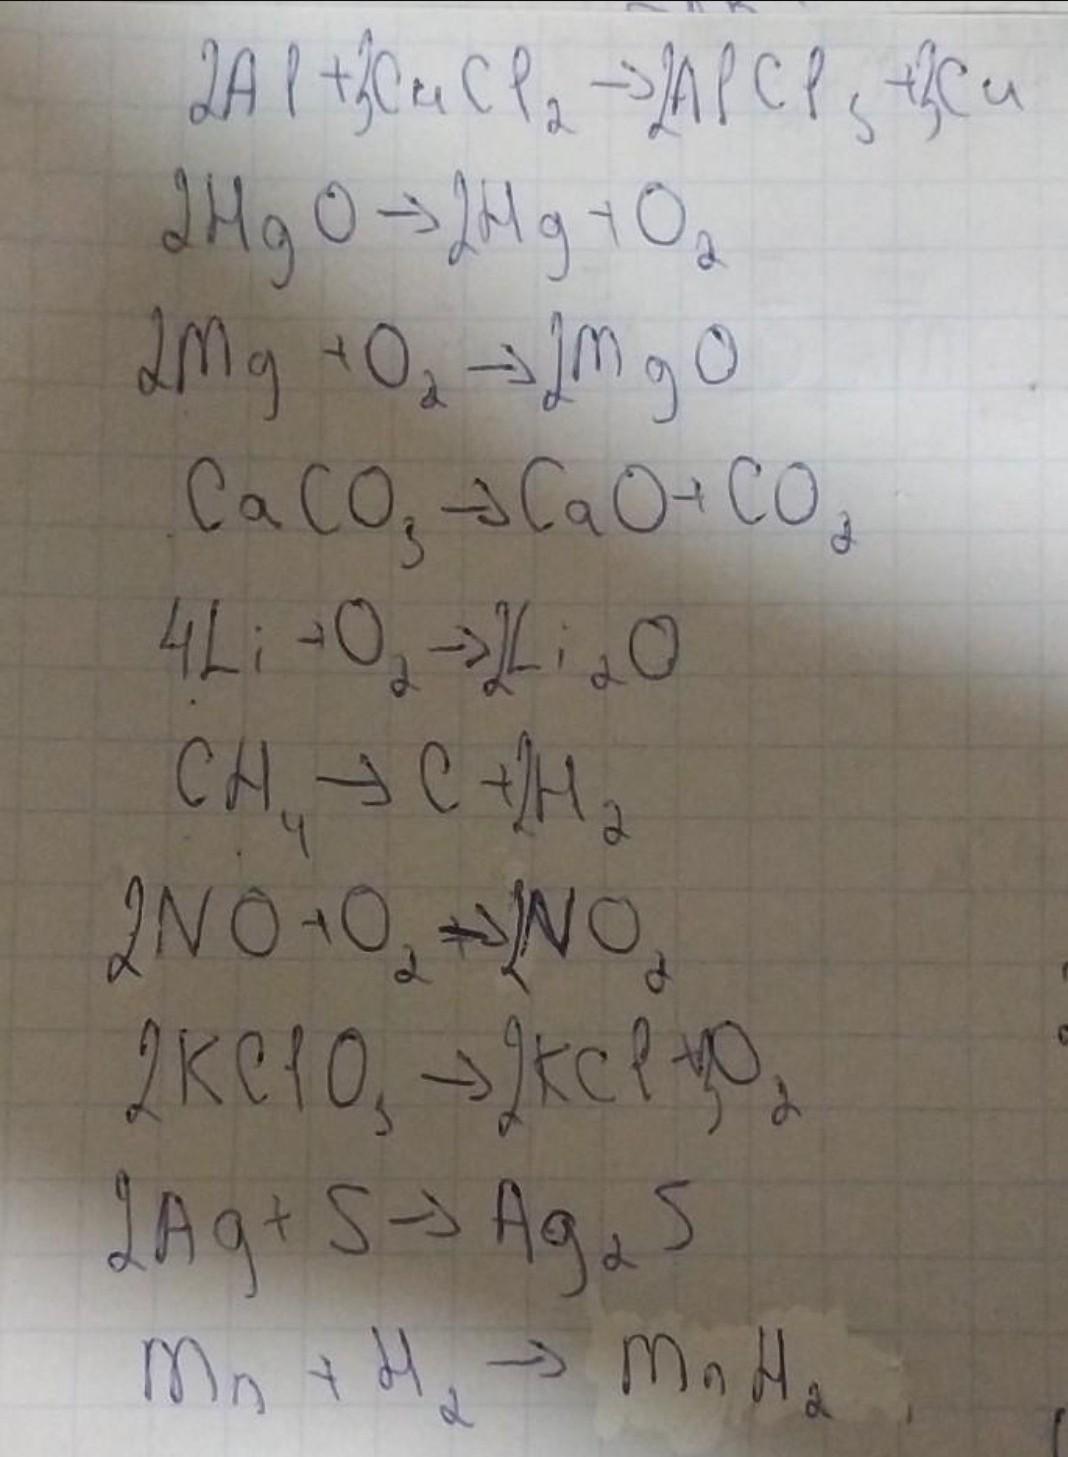 2Al + 3CuCl₂ → 2AlCl₃ + 3Cu
2HgO → 2Hg + O₂
2Mg + O₂ → 2MgO
CaCO₃ → CaO + CO₂
4Li + O₂ → 2Li₂O
CH₄ → C + 2H₂
2NO + O₂ → 2NO₂
2KClO₃ → 2KCl + 3O₂
2Ag + S → Ag₂S
Mn + H₂ → MnH₂